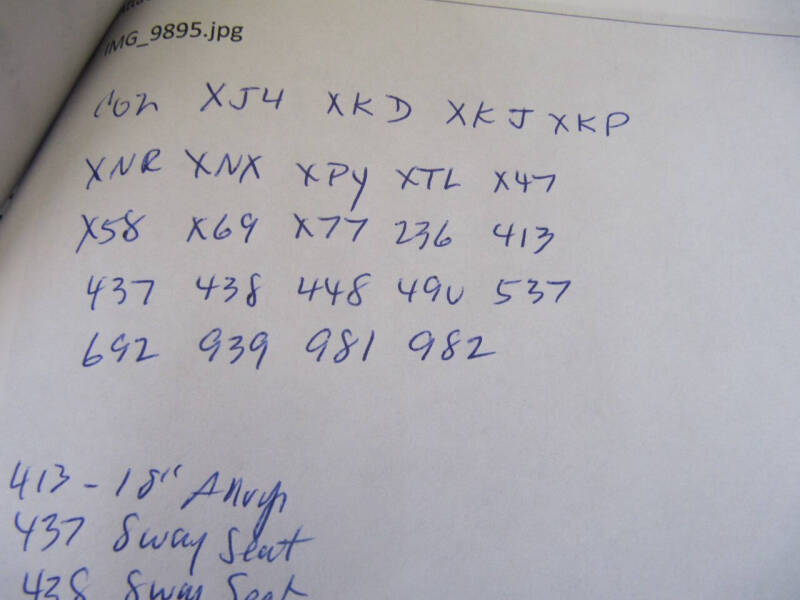 IMG_9895.jpg
XJ4 XKD XKJ XKP
XNR XNX XPY XTL X47
X58 X69 X77 236 413
437 438 448 490 537
692 939 981 982
413 - 18"
437 Sway Seat
438 Sway Seat